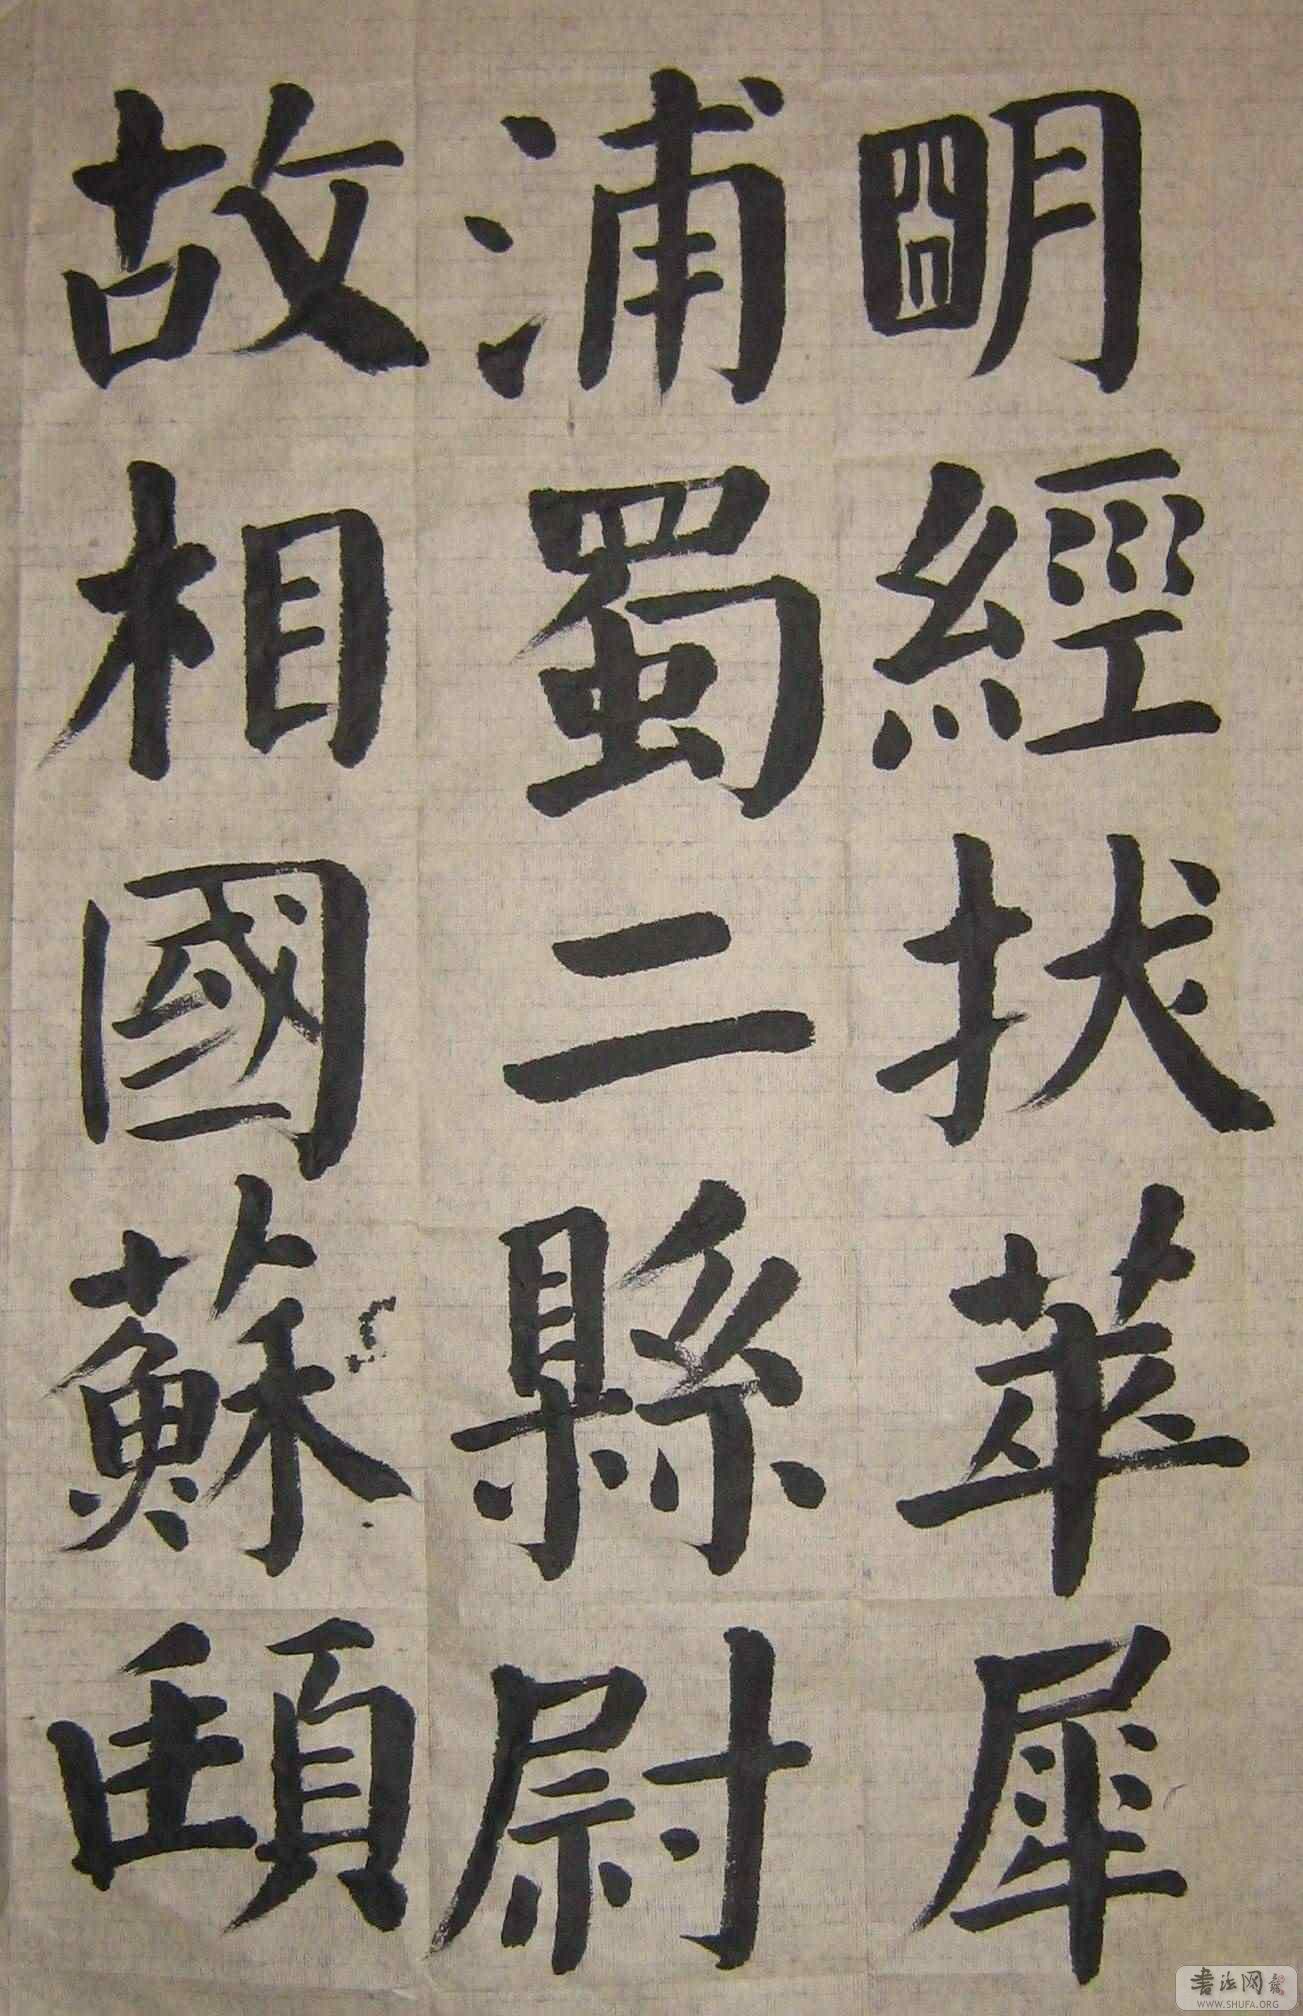 明經拔萃犀
浦蜀二縣尉
故相國蘇頲
書法网
WWW.SHUFA.ORG